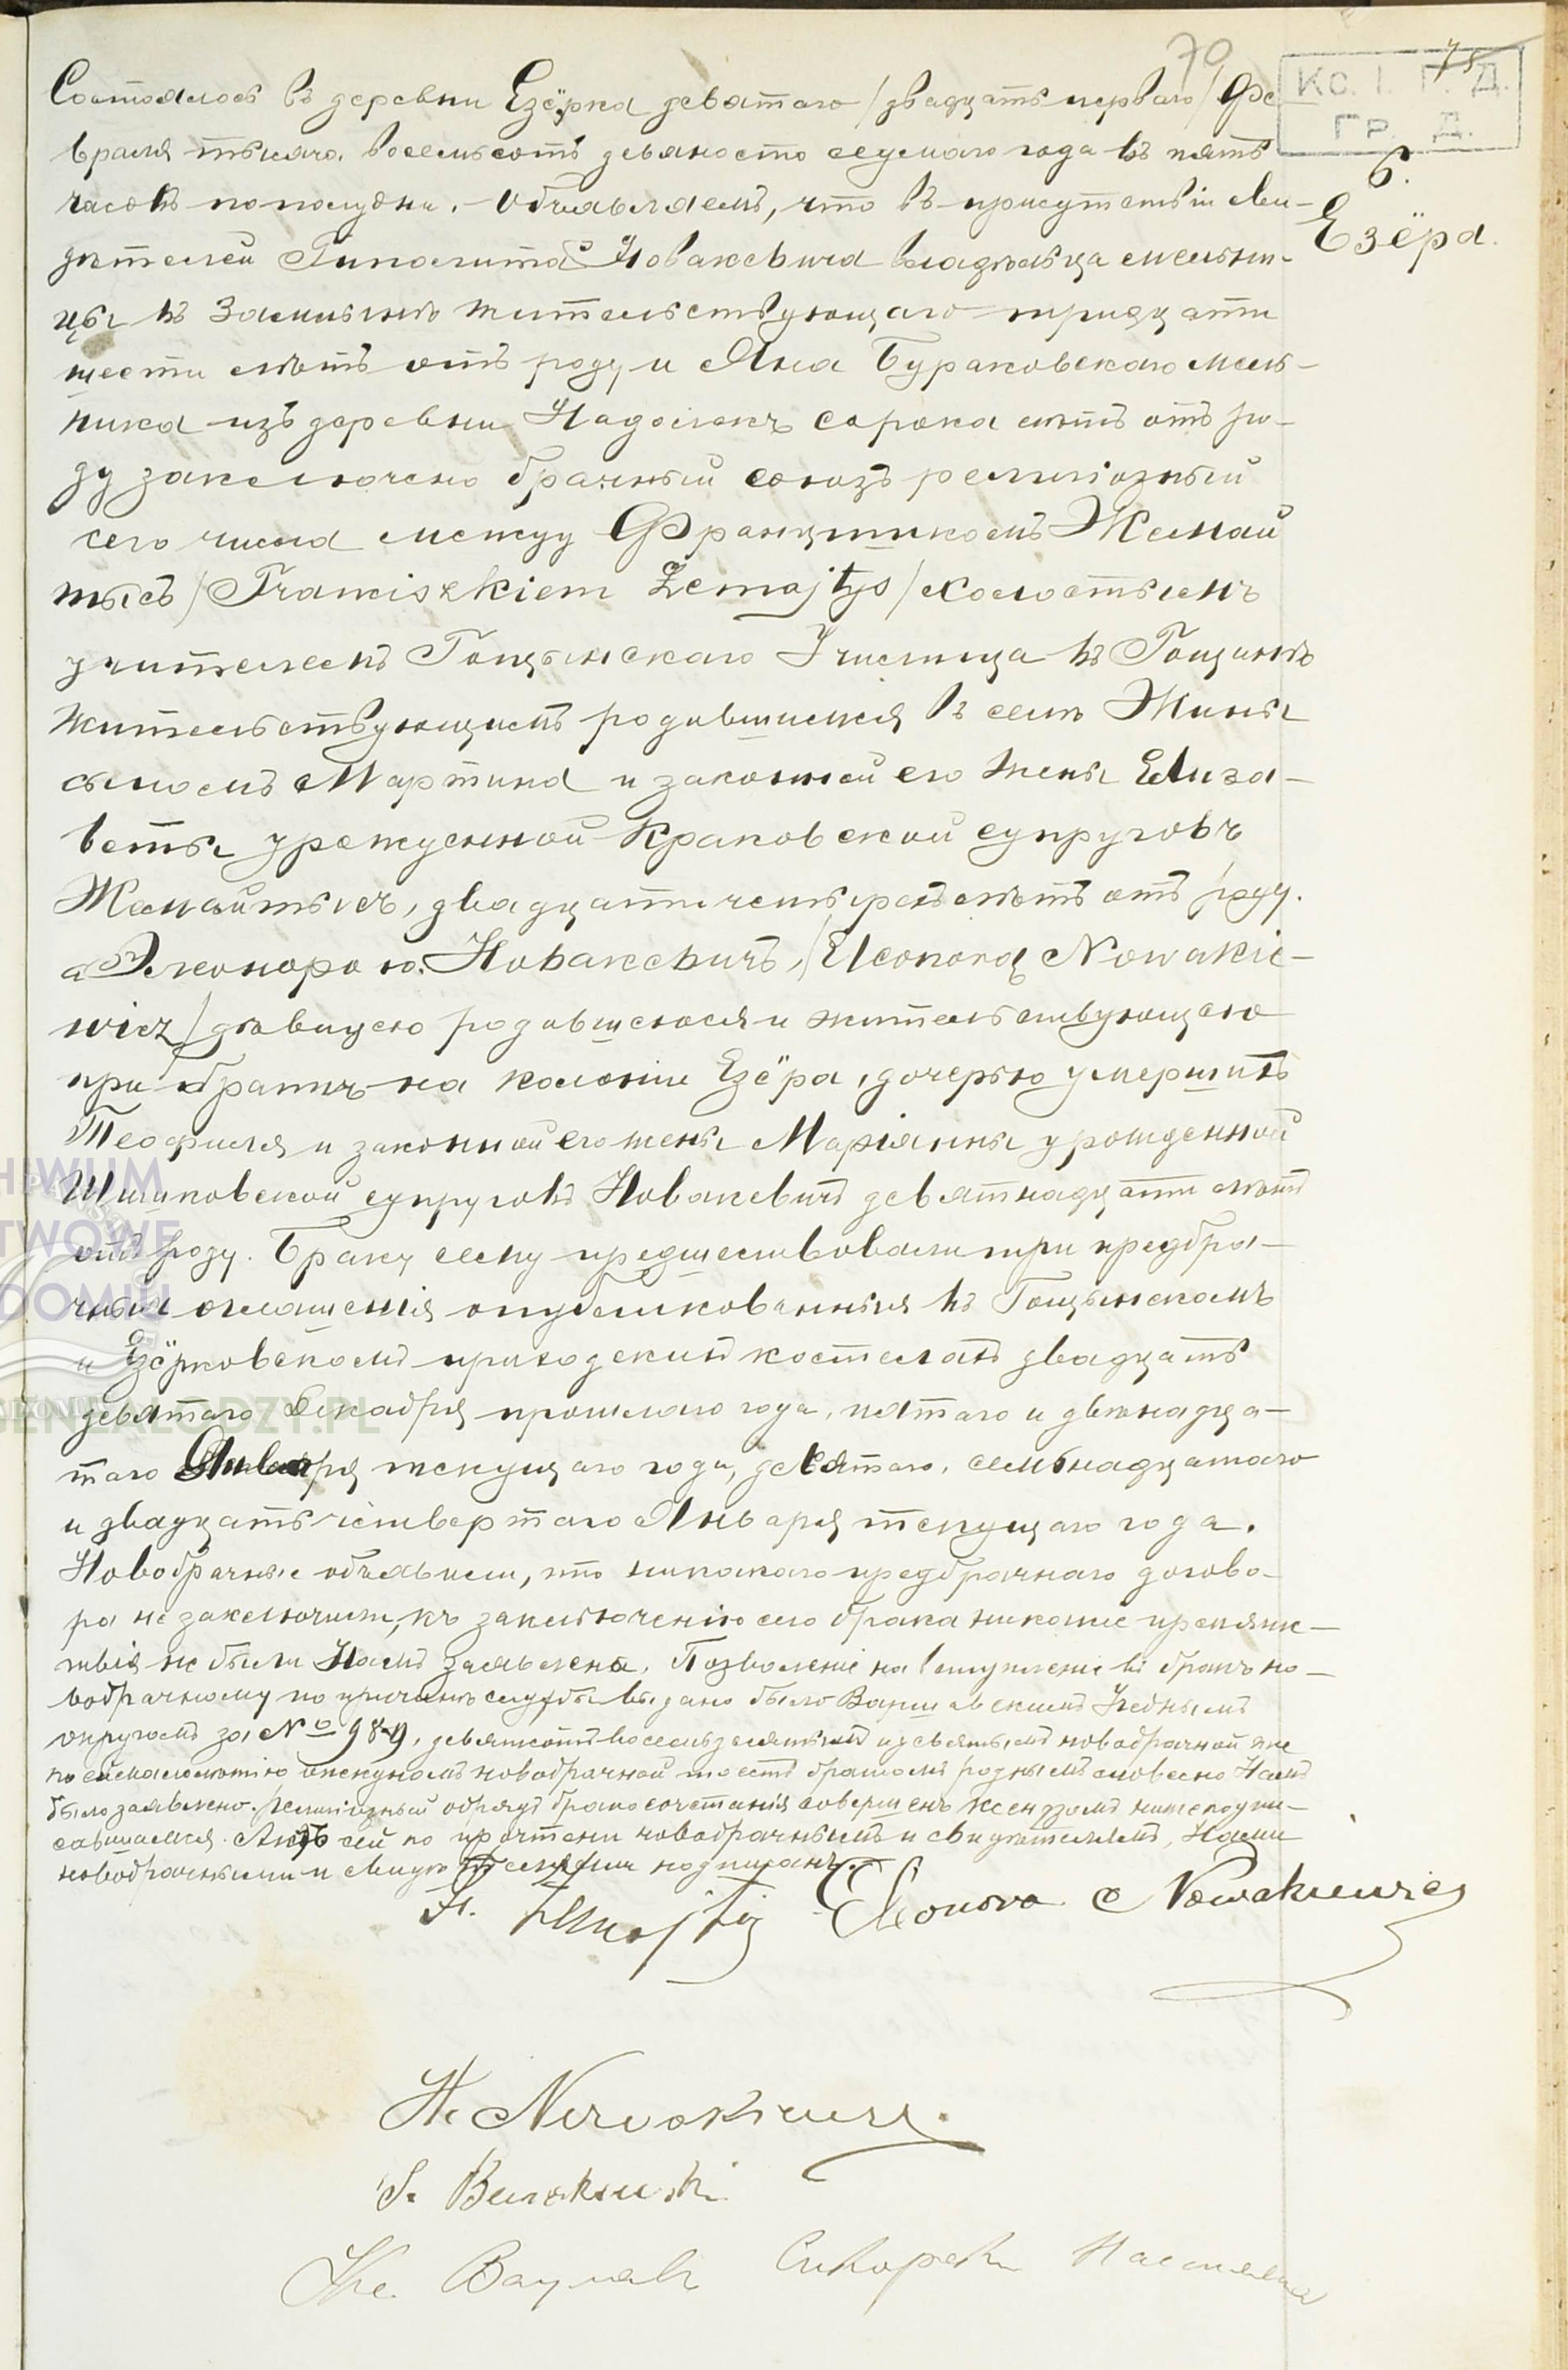 70
75
Кс. I. П. Д.
Гр. Д.
6.
Езёра.
Состоялось въ деревни Езёрка девятаго /двадцать перваго/ Фе
враля тысяча восемьсотъ девяносто седьмаго года въ пять
часовъ пополудни. Объявляемъ, что въ присутствіи сви-
дѣтелей Гиполита Новакевича владѣльца мельни-
цы въ жительствующаго тридцати
шести лѣтъ отъ роду и Яна Бураковскаго мель-
ника изъ деревни Надолекъ сорока лѣтъ отъ ро-
ду заключено брачный союзъ религіозный
сего числа между Францишкомъ Жемай
тысъ /Franciszkiem Żemajtys/ холостымъ
учителемъ Гощынскаго Училища въ Гощинѣ
жительствующимъ родившимся въ селѣ Жины
сыномъ Мартина и законной его жены Елиза-
веты урожденной Краковской супруговъ
Жемайтысъ, двадцати четырехъ лѣтъ отъ роду.
а Элеонорою Новакевичъ, /Eleonorą Nowakie-
wicz/ дѣвицею родившеюся и жительствующею
при братѣ на колоніи Езёра, дочерью умершихъ
Теофиля и законной его жены Маріянны урожденной
Шишковской супруговъ Новакевичъ девятнадцати лѣтъ
отъ роду. Браку сему предшествовали три предбра-
чныя оглашенія опубликованныя въ Гощынскомъ
и Езёрковскомъ приходскихъ костелахъ двадцать
девятаго Декабря прошлаго года, пятаго и двѣнадца-
таго Января текущаго года, девятаго, семьнадцатаго
и двадцать четвертаго Января текущаго года.
Новобрачные объявили, что никакого предбрачнаго догово-
ра не заключили, къ заключенію сего брака никакіе препятс-
твія не были Намъ заявлена. Позволеніе на вступленіе въ бракъ но-
вобрачному по причинѣ службы выдано было Варшавскимъ Учебнымъ
округомъ за № 989, девятьсотъ восемьдесятымъ и девятымъ новобрачной же
по ея малолѣтію опекуномъ новобрачной то есть братомъ роднымъ словесно Намъ
было заявлено. Религіозный обрядъ бракосочетанія совершенъ ксендзомъ нижеподпи-
савшимся. Актъ сей по прочтени новобрачнымъ и свидѣтелямъ, Нами
новобрачными и свидѣтелями подписанъ.
Fr. Żemajtys Eleonora Nowakiewicz
H. Nowakiewicz.
J. Burakowski
Кс. Вацлавъ Сикорски